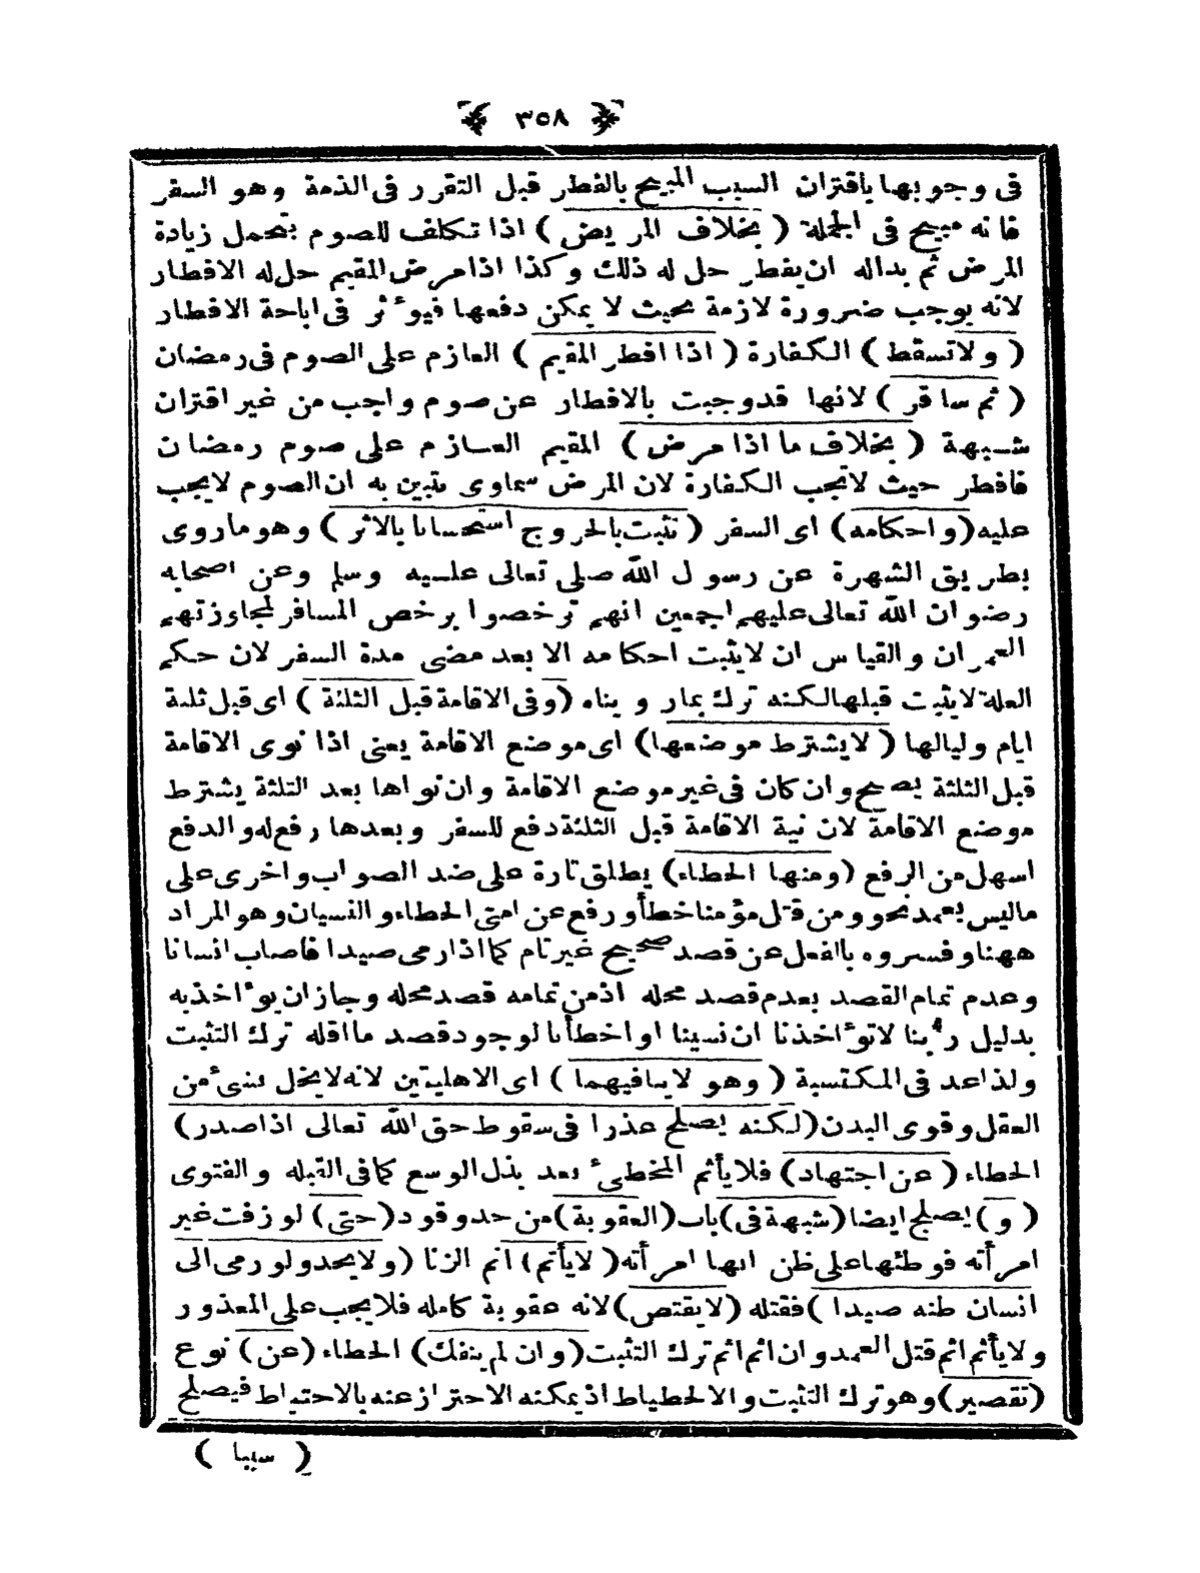 ٣٥٨
فى وجوبها باقتران السبب المبيح بالفطر قبل التقرر فى الذمة وهو السفر
فانه مبيح فى الجملة ( بخلاف المريض ) اذا تكلف للصوم بتحمل زيادة
المرض ثم بداله ان يفطر حل له ذلك وكذا اذا مرض المقيم حل له الافطار
لانه يوجب ضرورة لازمة بحيث لا يمكن دفعها فيوءثر فى اباحة الافطار
( ولا تسقط ) الكفارة ( اذا افطر المقيم ) العازم على الصوم فى رمضان
( ثم سافر ) لانها قد وجبت بالافطار عن صوم واجب من غير اقتران
شبهة ( بخلاف ما اذا مرض ) المقيم العازم على صوم رمضان
فافطر حيث لا تجب الكفارة لان المرض سماوى يتبين به ان الصوم لا يجب
عليه ( واحكامه ) اى السفر ( تثبت بالخروج استحسانا بالاثر ) وهو ما روى
بطريق الشهرة عن رسول الله صلى تعالى عليه وسلم وعن اصحابه
رضوان الله تعالى عليهم اجمعين انهم ترخصوا برخص المسافر لمجاوزتهم
العمران والقياس ان لا يثبت احكامه الا بعد مضى مدة السفر لان حكم
العلة لا يثبت قبلها لكنه ترك بمار ويناه ( وفى الاقامة قبل الثلثة ) اى قبل ثلثة
ايام ولياليها ( لا يشترط موضعها ) اى موضع الاقامة يعنى اذا نوى الاقامة
قبل الثلثة يصح وان كان فى غير موضع الاقامة وان نواها بعد الثلثة يشترط
موضع الاقامة لان نية الاقامة قبل الثلثة دفع للسفر وبعدها رفع له والدفع
اسهل من الرفع ( ومنها الخطاء ) يطلق تارة على ضد الصواب واخرى على
ماليس بعمد نحو ومن قتل مؤمنا خطأ ورفع عن امتى الخطاء والنسيان وهو المراد
ههنا وفسروه بالفعل عن قصد صحيح غير تام كما اذا رمى صيدا فاصاب انسانا
وعدم تمام القصد بعدم قصد محله اذ من تمامه قصد محله وجاز ان يوءاخذ به
بدليل ربنا لا توءاخذنا ان نسينا او اخطأنا لوجود قصد ما اقله ترك التثبت
ولذا عد فى المكتسبة ( وهو لا ينافيهما ) اى الاهليتين لانه لا يخل بشىء من
العقل وقوى البدن ( لكنه يصلح عذرا فى سقوط حق الله تعالى اذا صدر )
الخطاء ( عن اجتهاد ) فلا يأثم المخطىء بعد بذل الوسع كما فى القبله والفتوى
( و ) يصلح ايضا ( شبهة فى ) باب ( العقوبة ) من حد وقود ( حتى ) لو زفت غير
امرأته فوطئها على ظن انها امرأته ( لا يأثم ) اثم الزنا ( ولا يحد ولو رمى الى
انسان ظنه صيدا ) فقتله ( لا يقتص ) لانه عقوبة كامله فلا يجب على المعذور
ولا يأثم اثم قتل العمد وان اثم اثم ترك التثبت ( وان لم ينفك ) الخطاء ( عن ) نوع
( تقصير ) وهو ترك التثبت والاحطياط اذ يمكنه الاحتراز عنه بالاحتياط فيصلح
( سببا )